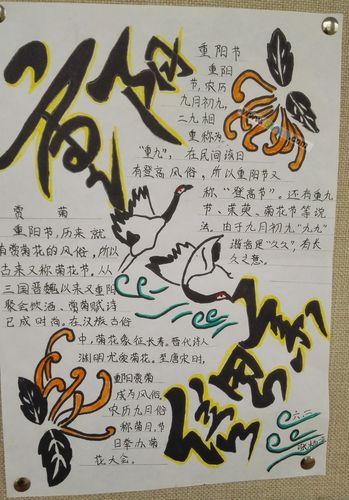 重阳
重阳节
重阳
节，农历
九月初九，
二九相
重，称为
“重九”，在民间该日
有登高风俗，所以重阳节又
称“登高节”。还有重九
节、茱萸、菊花节等说
法。由于九月初九“九九”
谐音是“久久”，有长
久之意。
赏菊
重阳节，历来就
有赏菊花的风俗，所以
古来又称菊花节。从
三国晋魏以来又重阳
聚会饮酒、赏菊赋诗
已成时尚。在汉族古俗
中，菊花象征长寿。晋代诗人
渊明尤爱菊花。至唐宋时，
重阳赏菊
成为风俗，
农历九月俗
称菊月，节
日举办菊
花大会。
六.二